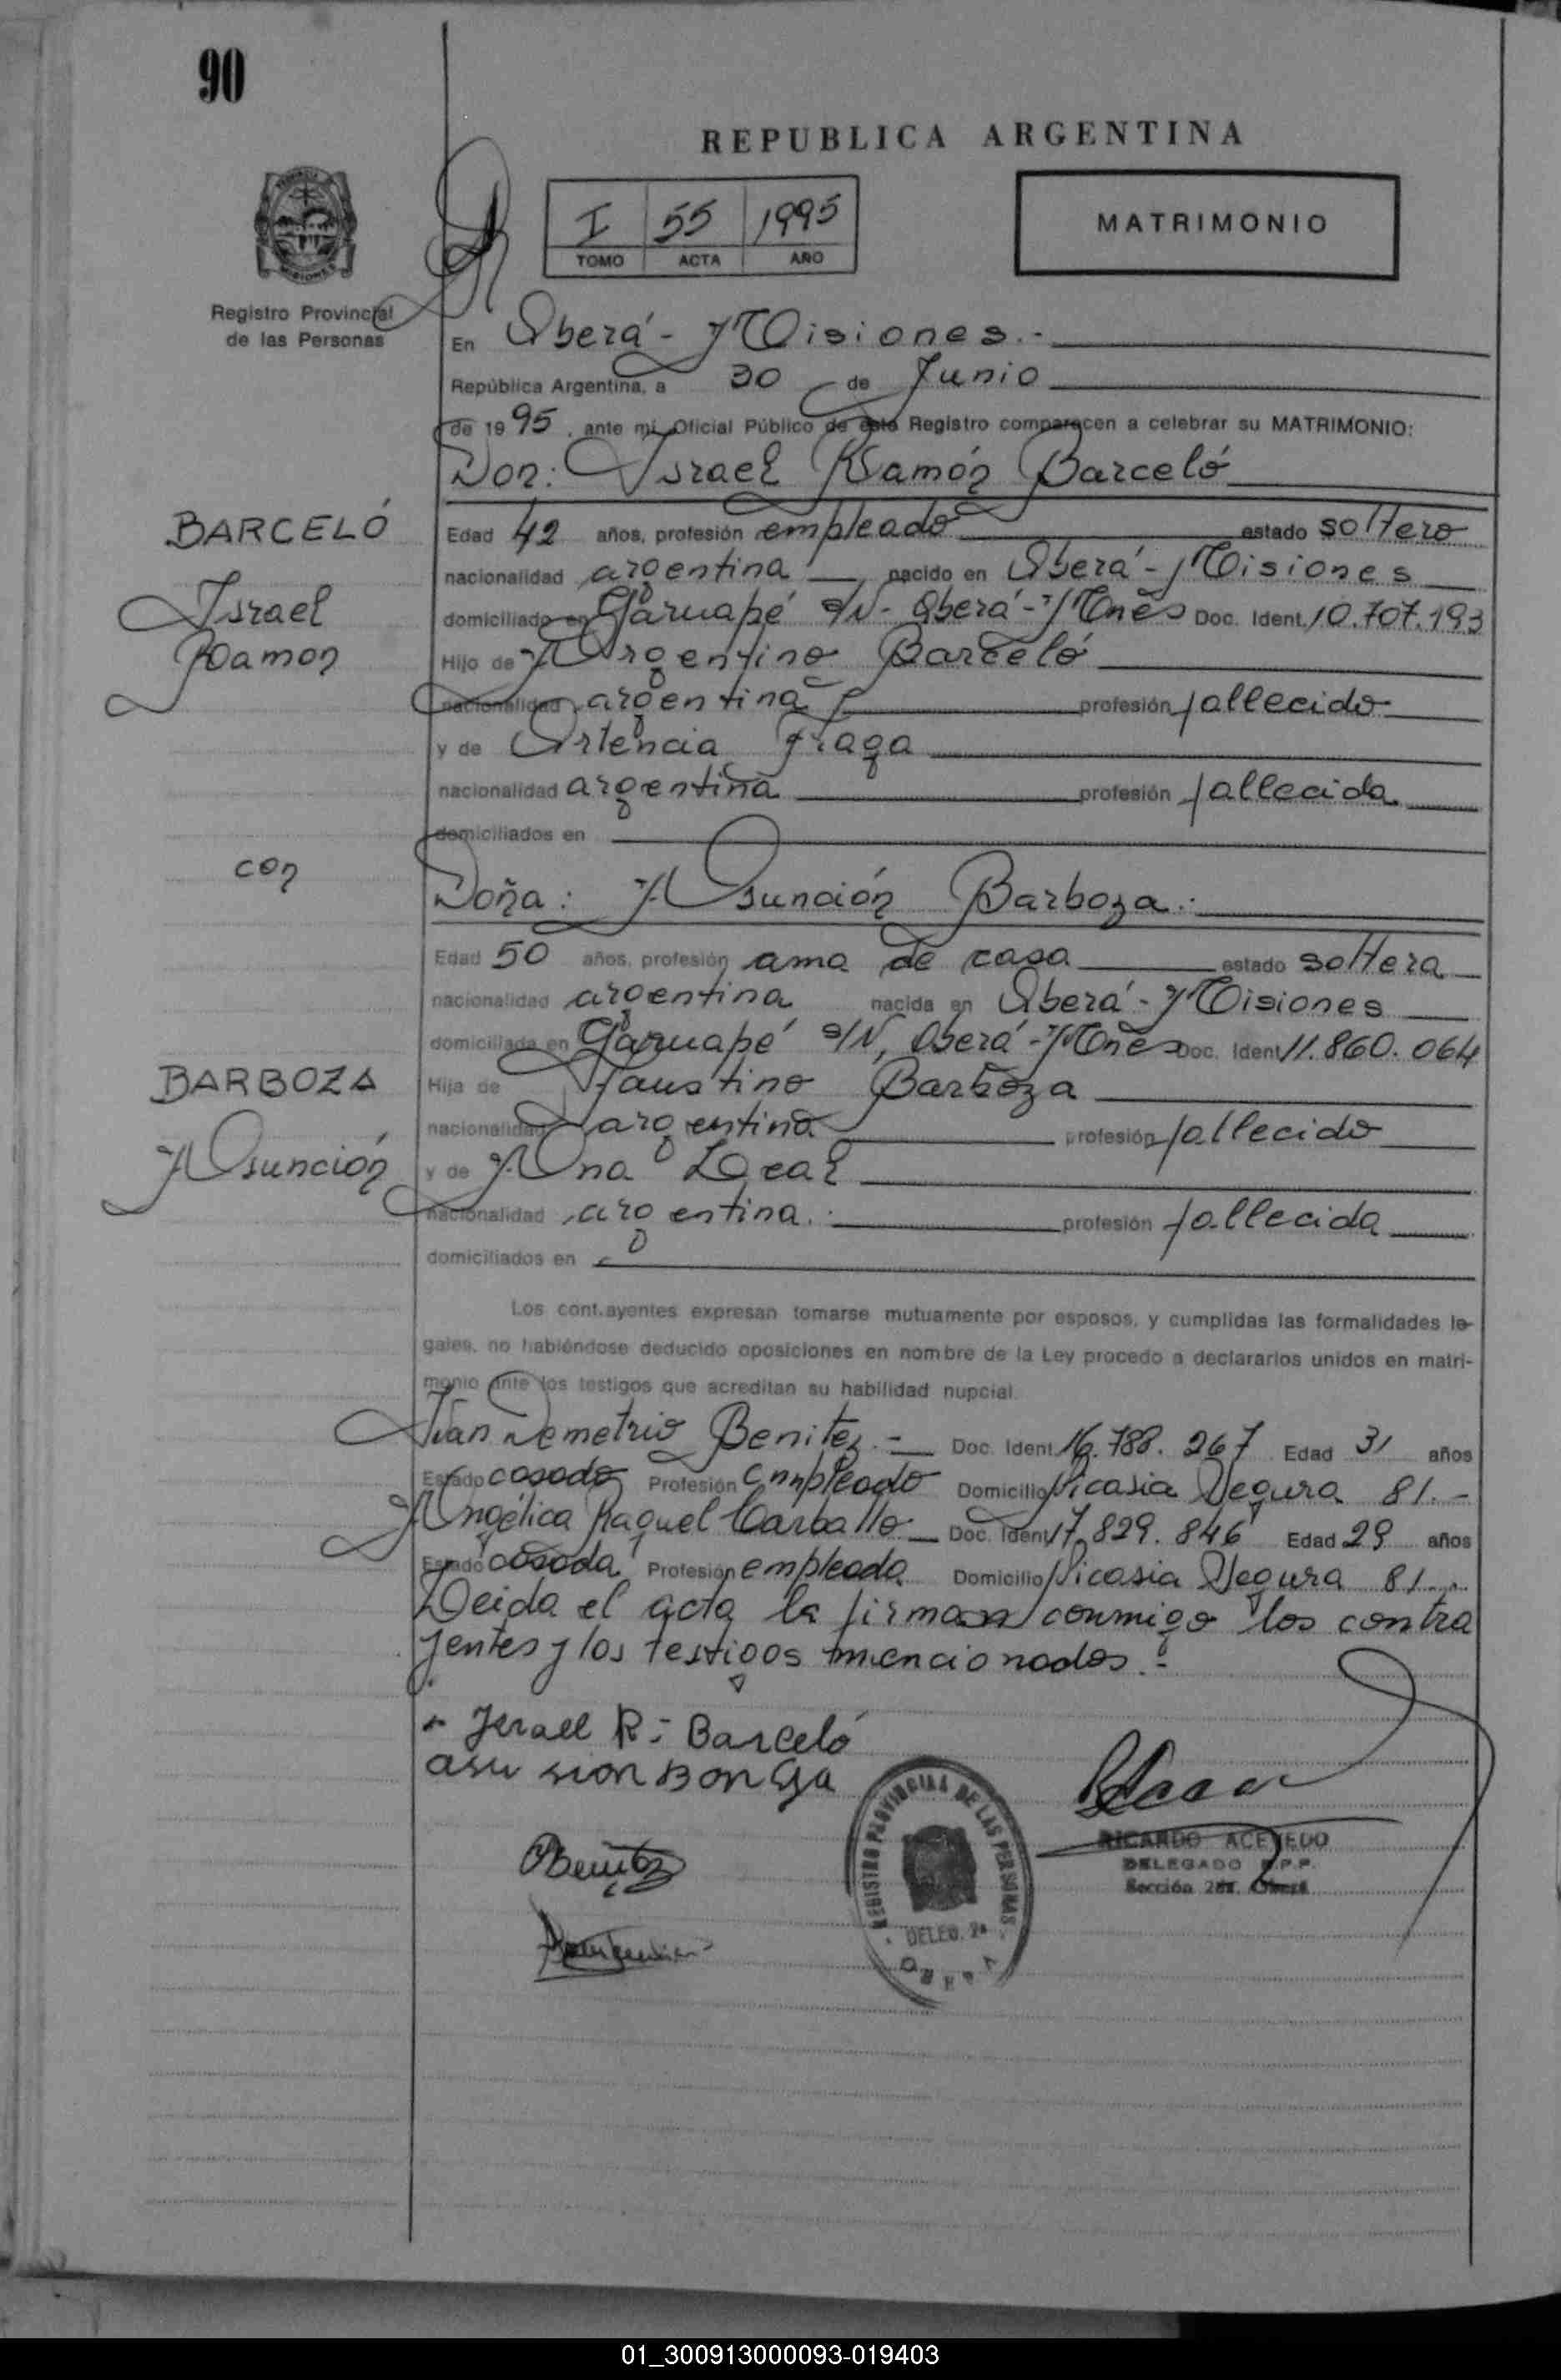 90
REPUBLICA ARGENTINA
I 55 1995
TOMO ACTA AÑO
MATRIMONIO
Registro Provincial
de las Personas
En Oberá - Misiones.-
República Argentina, a 30 de Junio
de 1995, ante mi, Oficial Público de este Registro comparecen a celebrar su MATRIMONIO:
Don: Israel Ramón Barceló
BARCELÓ
Israel
Ramon
Edad 42 años, profesión empleado estado soltero
nacionalidad argentina nacido en Oberá - Misiones
domiciliado en Garuapé s/N - Oberá - Mnes Doc. Ident. 10.707.193
Hijo de Argentino Barceló
nacionalidad argentina profesión fallecido
y de Ortencia Fraga
nacionalidad argentina profesión fallecida
domiciliados en
con
Doña: Asunción Barboza.
Edad 50 años, profesión ama de casa estado soltera
nacionalidad argentina nacida en Oberá - Misiones
domiciliada en Garuapé s/N, Oberá - Mnes Doc. Ident 11.860.064
BARBOZA
Asunción
Hija de Faustino Barboza
nacionalidad argentina profesión fallecido
y de Ana Leal
nacionalidad argentina. profesión fallecida
domiciliados en
Los cont.ayentes expresan tomarse mutuamente por esposos, y cumplidas las formalidades le-
gales, no habiéndose deducido oposiciones en nombre de la Ley procedo a declararlos unidos en matri-
monio ante los testigos que acreditan su habilidad nupcial.
Ivan Demetrio Benitez.- Doc. Ident. 16.788.267 Edad 31 años
Estado casado Profesión empleado Domicilio Picasia Segura 81.-
Angélica Raquel Carballo Doc. Ident 17.829.846 Edad 29 años
Estado casada Profesión empleada Domicilio Picasia Segura 81.
Leida el acta la firman conmigo los contra
yentes y los testigos mencionados.-
Israel R.- Barceló
asu sion
Benitez
REGISTRO PROVINCIAL DE LAS PERSONAS
DELEG. 2ª
OBERA
RICARDO ACEVEDO
DELEGADO R.P.P.
Sección 2da. Oberá
01_300913000093-019403